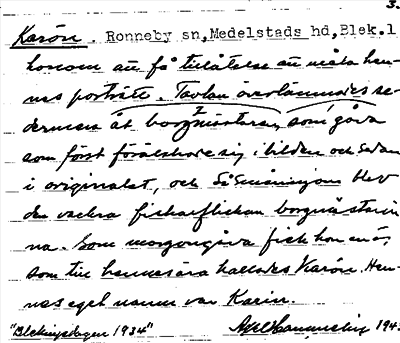 3.
Karön. Ronneby sn, Medelstads hd, Blek.l
honom att få tillåtelse att måla hen-
nes porträtt. Tavlan överlämnades se-
dermera åt borgmästaren, som gåva
som först förälskade sig i bilden och sedan
i originalet, och så småningom blev
den vackra fiskarflickan borgmästarin
na. Som morgongåva fick hon en ö,
som till hennes ära kallades Karön. Hen-
nes eget namn var Karin.
"Blekingedagen 1934" 194